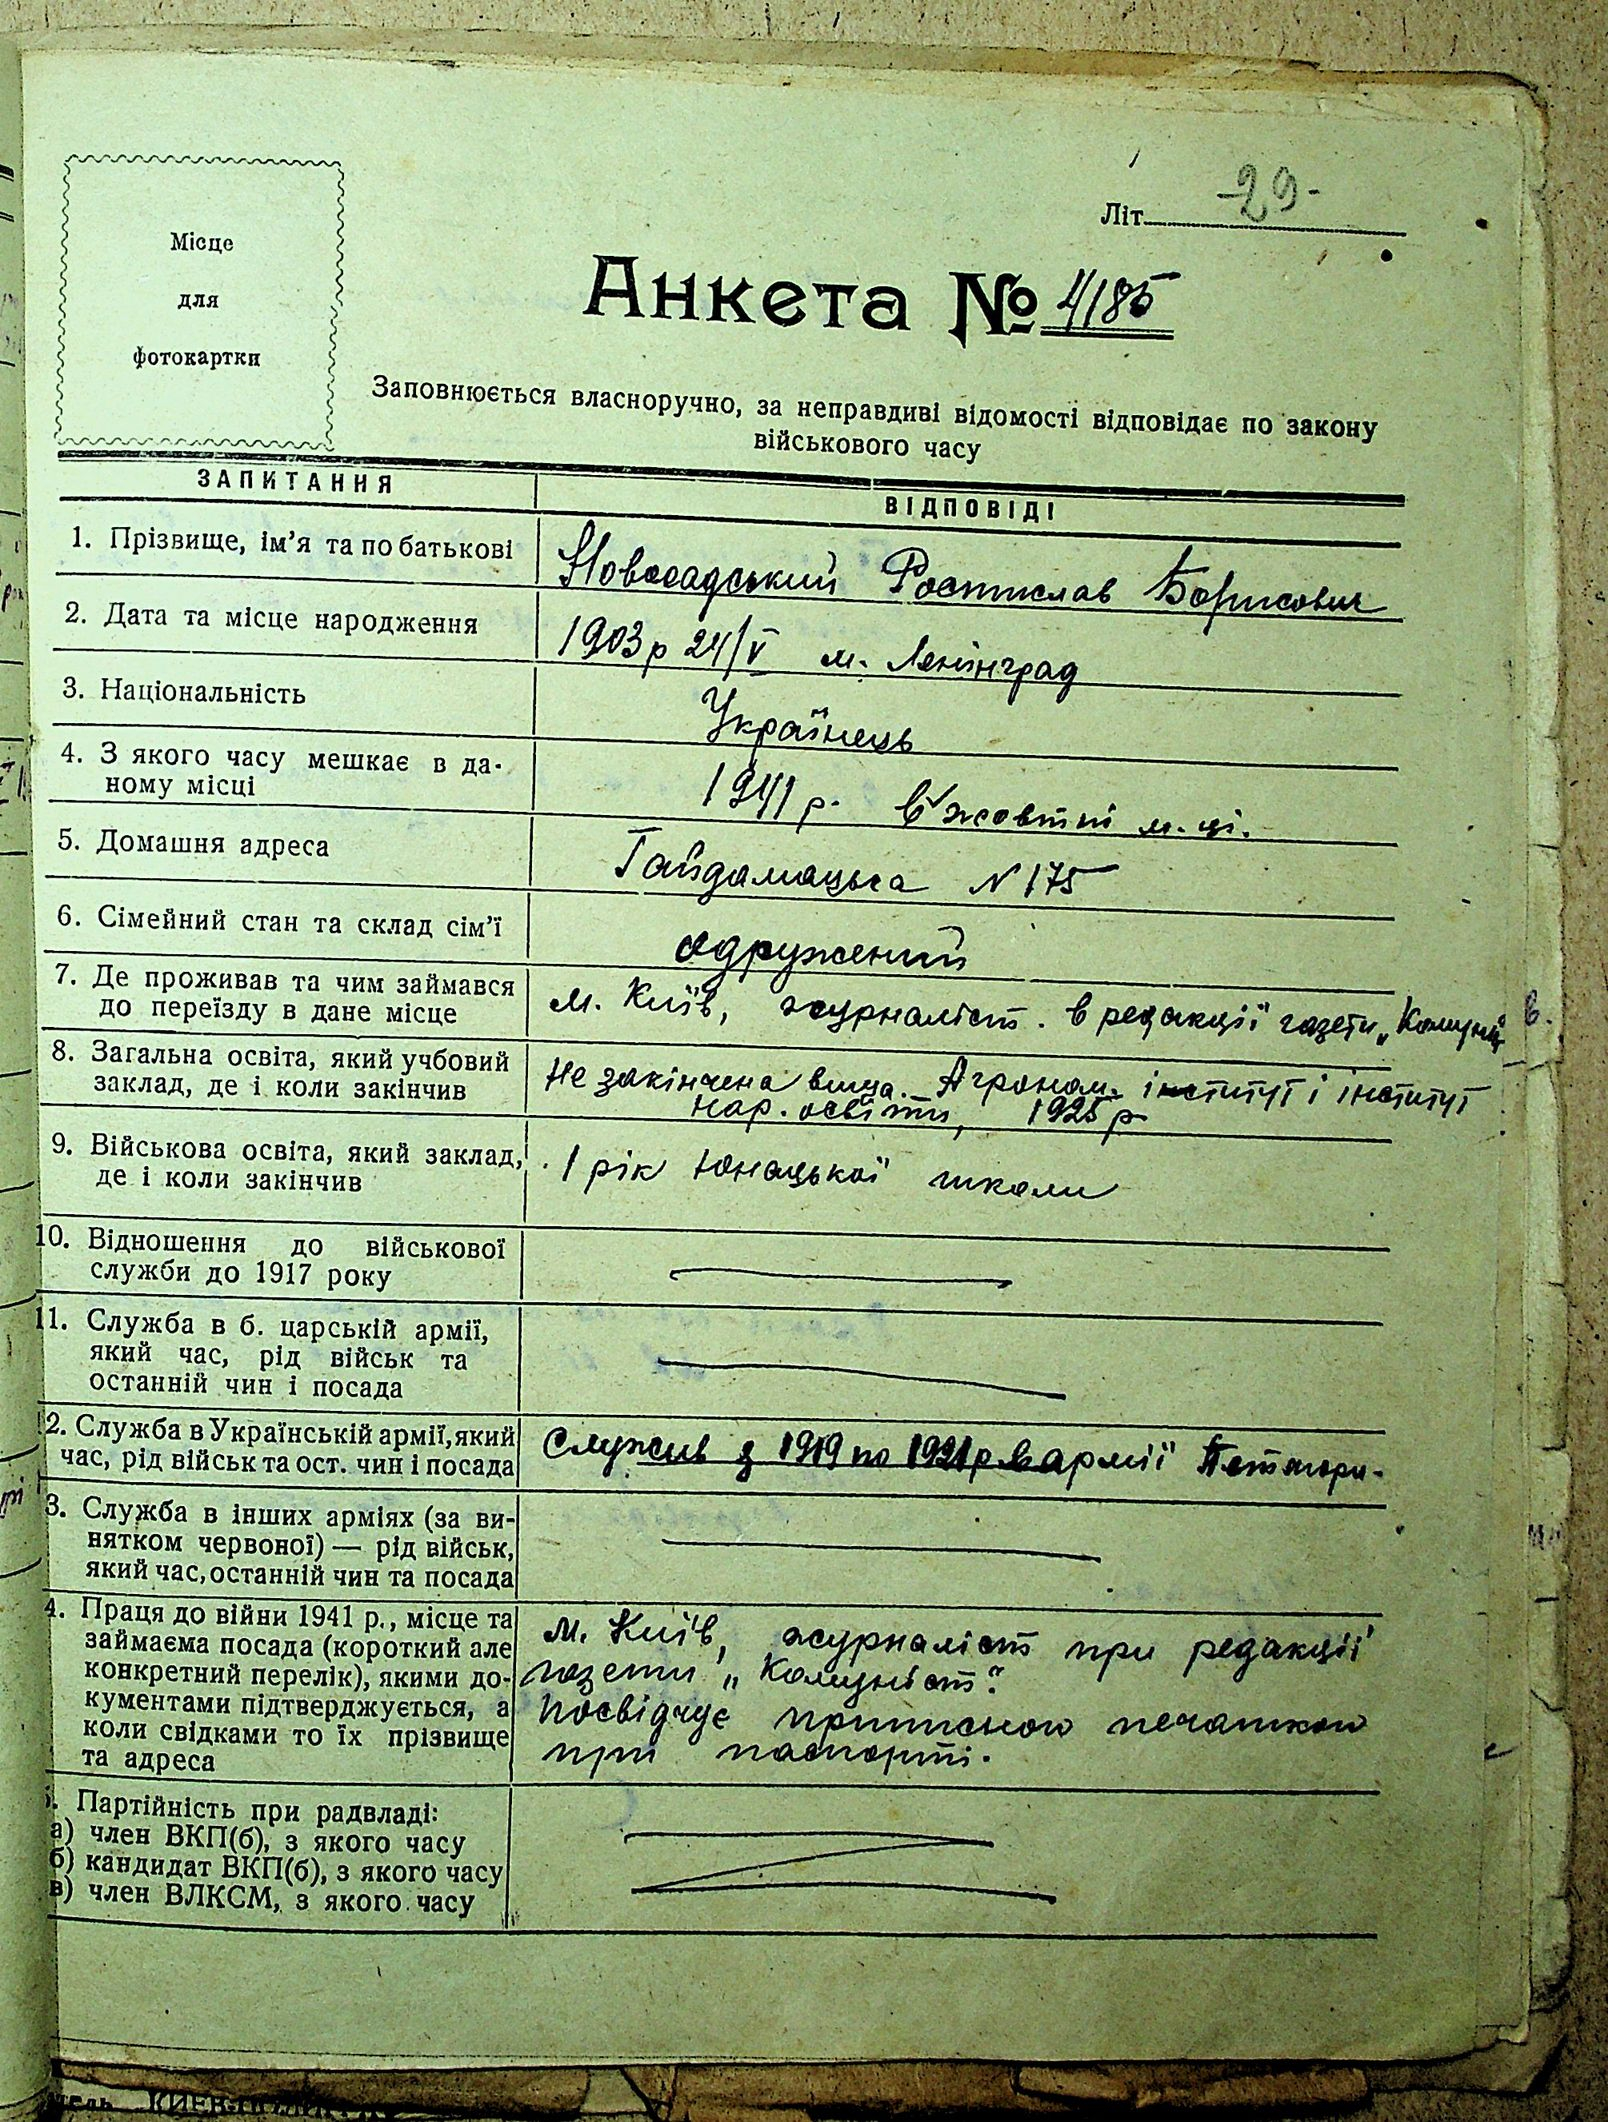 Місце
для
фотокартки
Літ. -29-
Анкета № 4185
Заповнюється власноручно, за неправдиві відомості відповідає по закону
військового часу
ЗАПИТАННЯ
ВІДПОВІДІ
1. Прізвище, ім'я та по батькові
Новосадський Ростислав Борисович
2. Дата та місце народження
1903р 24/V м. Ленінград
3. Національність
Українець
4. З якого часу мешкає в да-
ному місці
1941 р. в жовтні м-ці.
5. Домашня адреса
Гайдамацька N 175
6. Сімейний стан та склад сім'ї
одружений
7. Де проживав та чим займався
до переїзду в дане місце
м. Київ, журналіст. в редакції газети „Комуніст"
8. Загальна освіта, який учбовий
заклад, де і коли закінчив
Не закінчена вища. Агроном. інститут і інститут
нар. освіти, 1925 р
9. Військова освіта, який заклад,
де і коли закінчив
1 рік Юнацької школи
10. Відношення до військової
служби до 1917 року
11. Служба в б. царській армії,
який час, рід військ та
останній чин і посада
12. Служба в Українській армії, який
час, рід військ та ост. чин і посада
Служив з 1919 по 1921 р в армії
3. Служба в інших арміях (за ви-
нятком червоної) — рід військ,
який час, останній чин та посада
4. Праця до війни 1941 р., місце та
займаєма посада (короткий але
конкретний перелік), якими до-
кументами підтверджується, а
коли свідками то їх прізвище
та адреса
м. Київ, журналіст при редакції
газети „Комуніст".
Посвідчує приписною печаткою
при паспорті.
. Партійність при радвладі:
а) член ВКП(б), з якого часу
б) кандидат ВКП(б), з якого часу
в) член ВЛКСМ, з якого часу